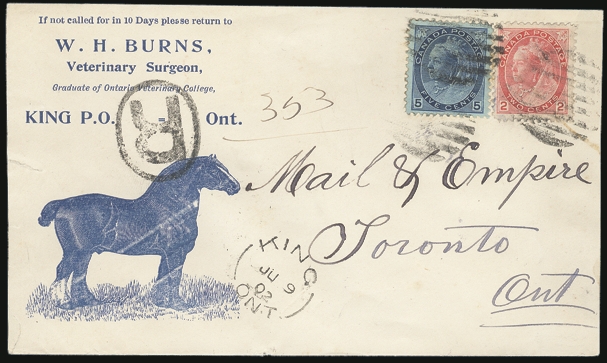 If not called for in 10 Days please return to
W. H. BURNS,
Veterinary Surgeon,
Graduate of Ontario Veterinary College,
KING P.O. - Ont.
R
353
CANADA POSTAGE
5 FIVE CENTS 5
CANADA POSTAGE
2 TWO CENTS 2
Mail & Empire
Toronto
Ont
KING
JU 9
02
ONT